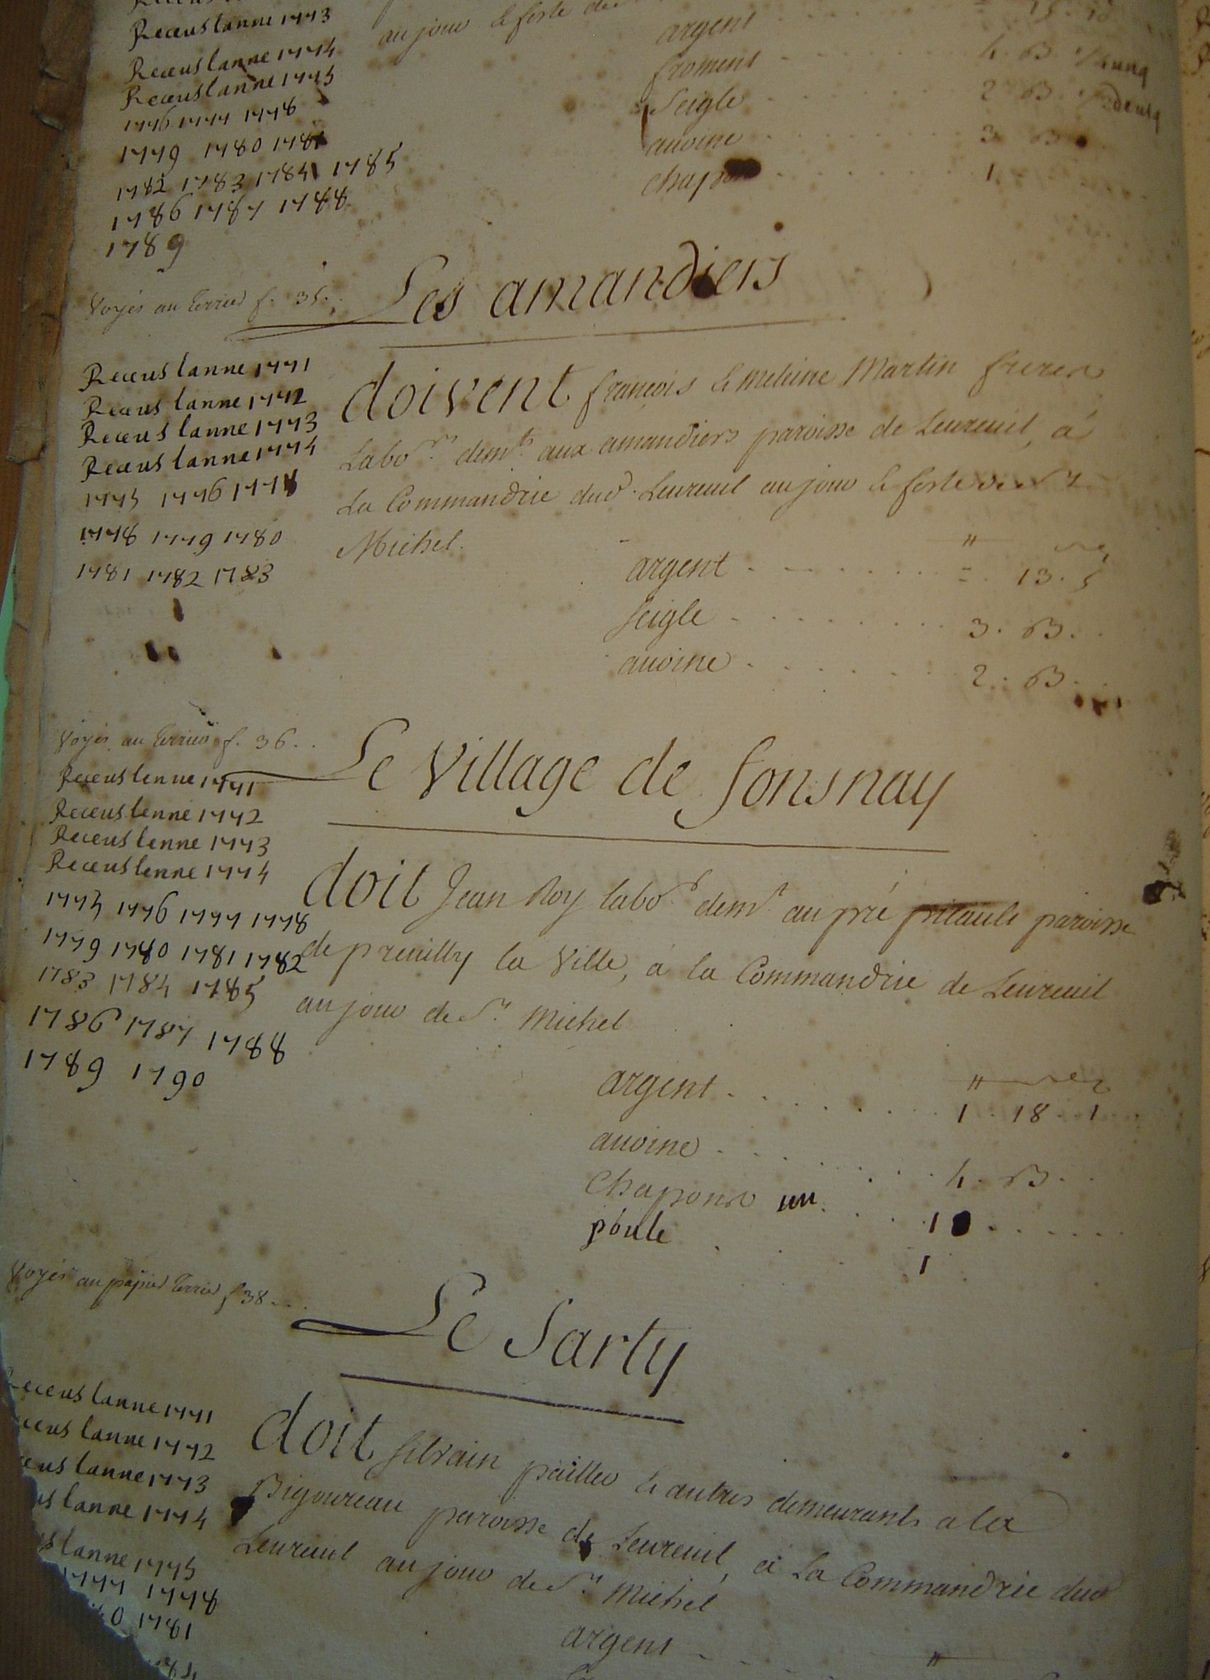 Receus lanne 1773
Receus lanne 1774
Receus lanne 1775
1776 1777 1778
1779 1780 1781
1782 1783 1784 1785
1786 1787 1788
1789
au jour & feste de
argent
froment
4. B
Seigle
2 B
avoine
3 B
chapon
1
Voyés au terrier f. 35.
Les amandiers
Receus lanne 1771
Receus lanne 1772
Receus lanne 1773
Receus lanne 1774
1775 1776 1777
1778 1779 1780
1781 1782 1783
doivent françois & Martin freres
Labo.rs dem.ts aux amandiers paroisse de Leureuil, à
La Commandrie dud. Leureuil au jour & feste de St.
Michel.
argent 13. 5
Seigle 3. B.
avoine 2. B.
Voyés au terrier f. 36.
Le Village de fonsnay
Receus lenne 1771
Receus lenne 1772
Receus lenne 1773
Receus lenne 1774
1775 1776 1777 1778
1779 1780 1781 1782
1783 1784 1785
1786 1787 1788
1789 1790
doit Jean Roy labo.r dem.t au pré paroisse
de preuilly la Ville, à la Commandrie de Leureuil
au jour de St. Michel
argent 1. 18. 1
avoine 4. B.
Chapons un 1
poule 1
Voyés au papier terrier f. 38
Le Sarty
Receus lanne 1771
ceus lanne 1772
eus lanne 1773
us lanne 1774
s lanne 1775
1777 1778
80 1781
doit Silvain & autres demeurants a la
Bigoureau paroisse de Leureuil, à La Commandrie dud
Leureuil au jour de St. Michel
argent